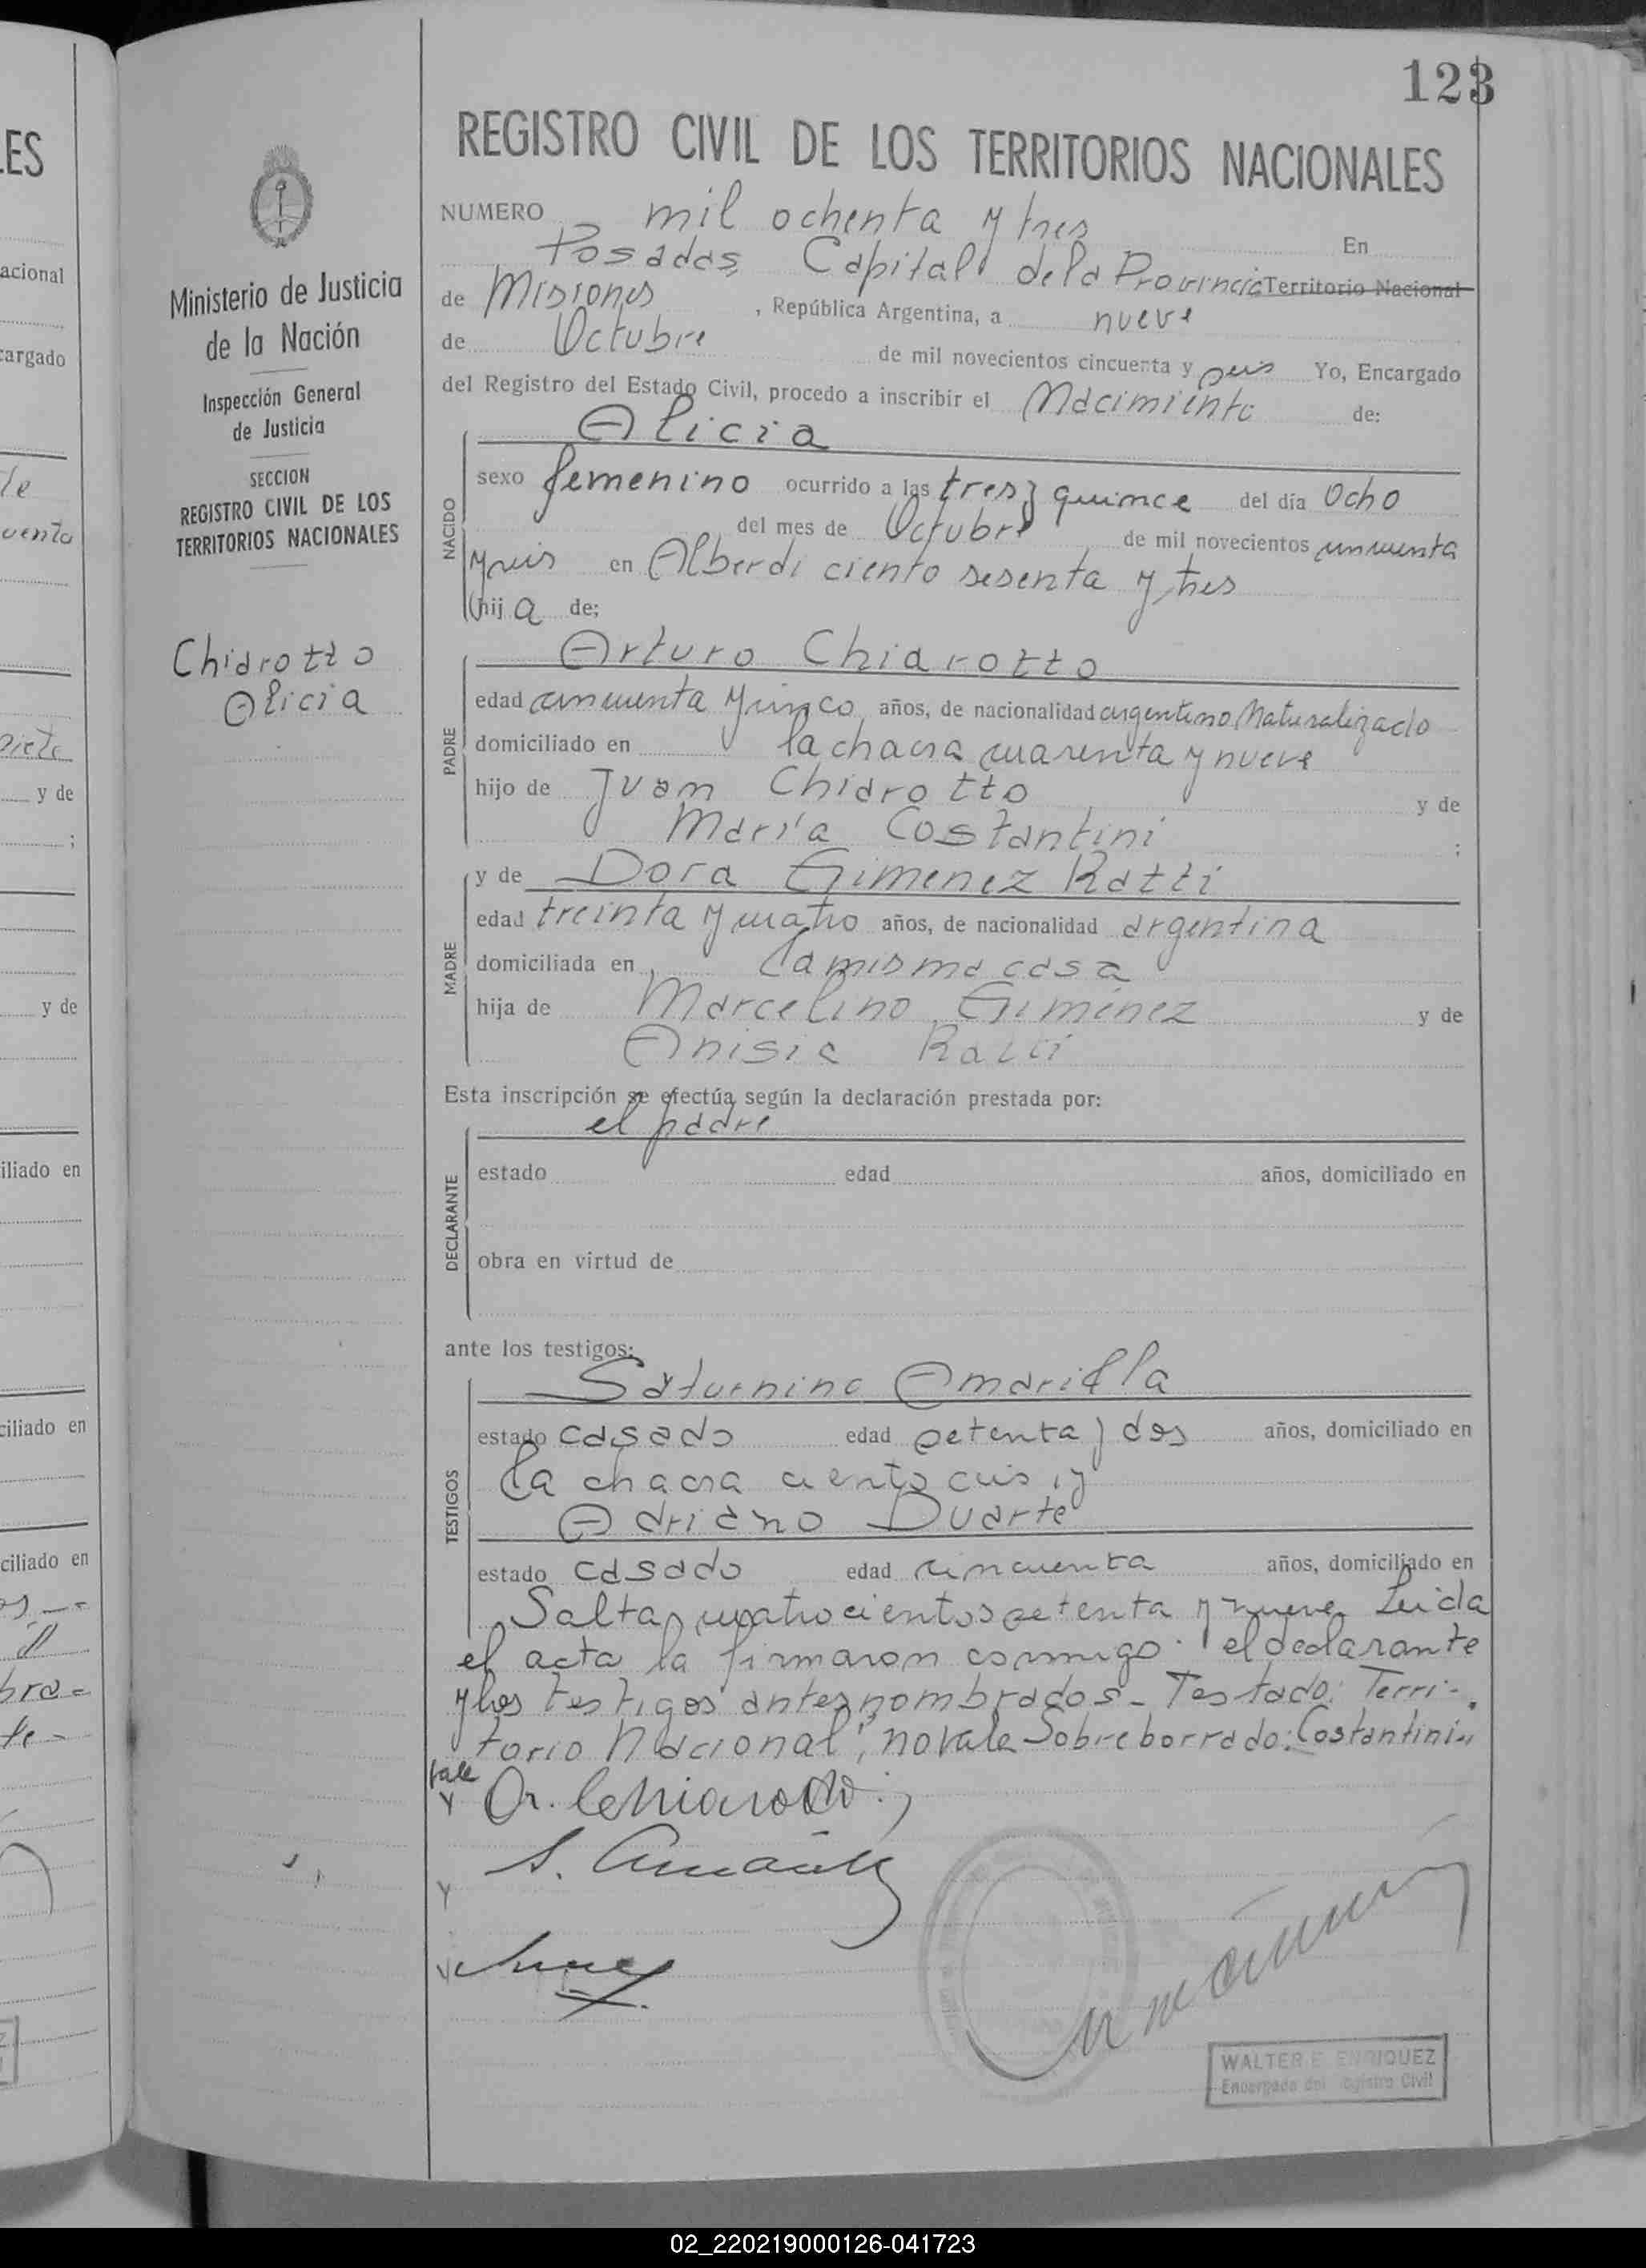 123
REGISTRO CIVIL DE LOS TERRITORIOS NACIONALES
NUMERO mil ochenta y tres En
Posadas, Capital de la Provincia Territorio Nacional
de Misiones, República Argentina, a nueve
de Octubre de mil novecientos cincuenta y seis Yo, Encargado
del Registro del Estado Civil, procedo a inscribir el Nacimiento de:
Alicia
sexo femenino ocurrido a las tres y quince del día Ocho
del mes de Octubre de mil novecientos cincuenta
y seis en Alberdi ciento sesenta y tres
hija de;
NACIDO
Arturo Chiarotto
edad cincuenta y cinco años, de nacionalidad argentino Naturalizado
domiciliado en la chacra cuarenta y nueve
hijo de Juan Chiarotto y de
María Costantini ;
PADRE
y de Dora Gimenez Ratti
edad treinta y cuatro años, de nacionalidad argentina
domiciliada en la misma casa
hija de Marcelino Giménez y de
Anisia Ratti
MADRE
Esta inscripción se efectúa según la declaración prestada por:
el padre
estado edad años, domiciliado en
obra en virtud de
DECLARANTE
ante los testigos:
Saturnino Amarilla
estado casado edad setenta y dos años, domiciliado en
la chacra ciento seis y
Adriano Duarte
estado casado edad cincuenta años, domiciliado en
Salta cuatrocientos setenta y nueve Leida
TESTIGOS
el acta la firmaron conmigo el declarante
y los testigos antes nombrados - Testado: Terri-
torio Nacional", no vale Sobreborrado: Costantini"
vale
Ar. Chiarotto
S. Amarilla
WALTER E. ENRIQUEZ
Encargado del Registro Civil
Ministerio de Justicia
de la Nación
Inspección General
de Justicia
SECCION
REGISTRO CIVIL DE LOS
TERRITORIOS NACIONALES
Chiarotto
Alicia
LES
acional
cargado
y de
;
y de
iliado en
ciliado en
ciliado en
02_220219000126-041723